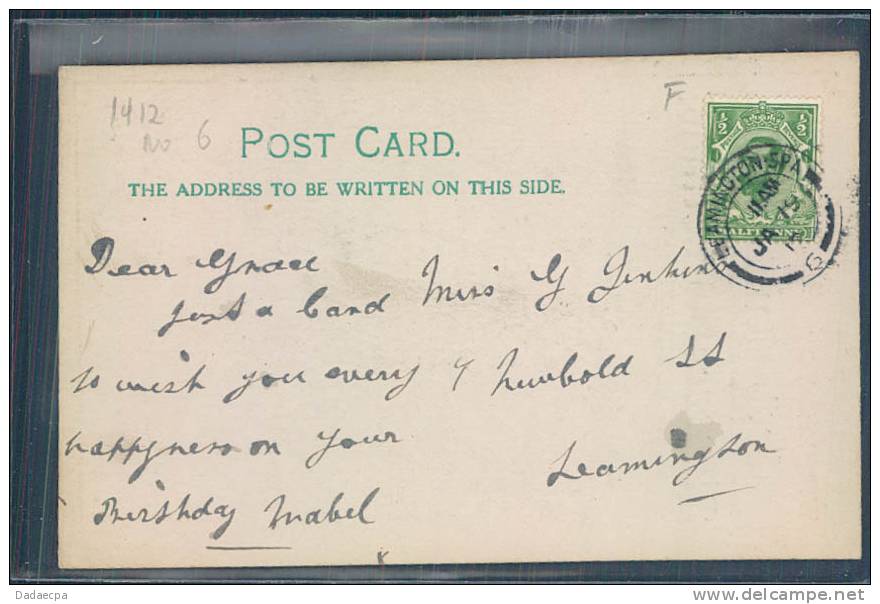 1412
No 6
F
POST CARD.
THE ADDRESS TO BE WRITTEN ON THIS SIDE.
½ ½
LEAMINGTON SPA
11 AM
JA 13
Dear Grace
just a Card
to wish you every
happyness on your
Birthday Mabel
Miss G Jenkins
4 Newbold St
Leamington
Dadaecpa
www.delcampe.net